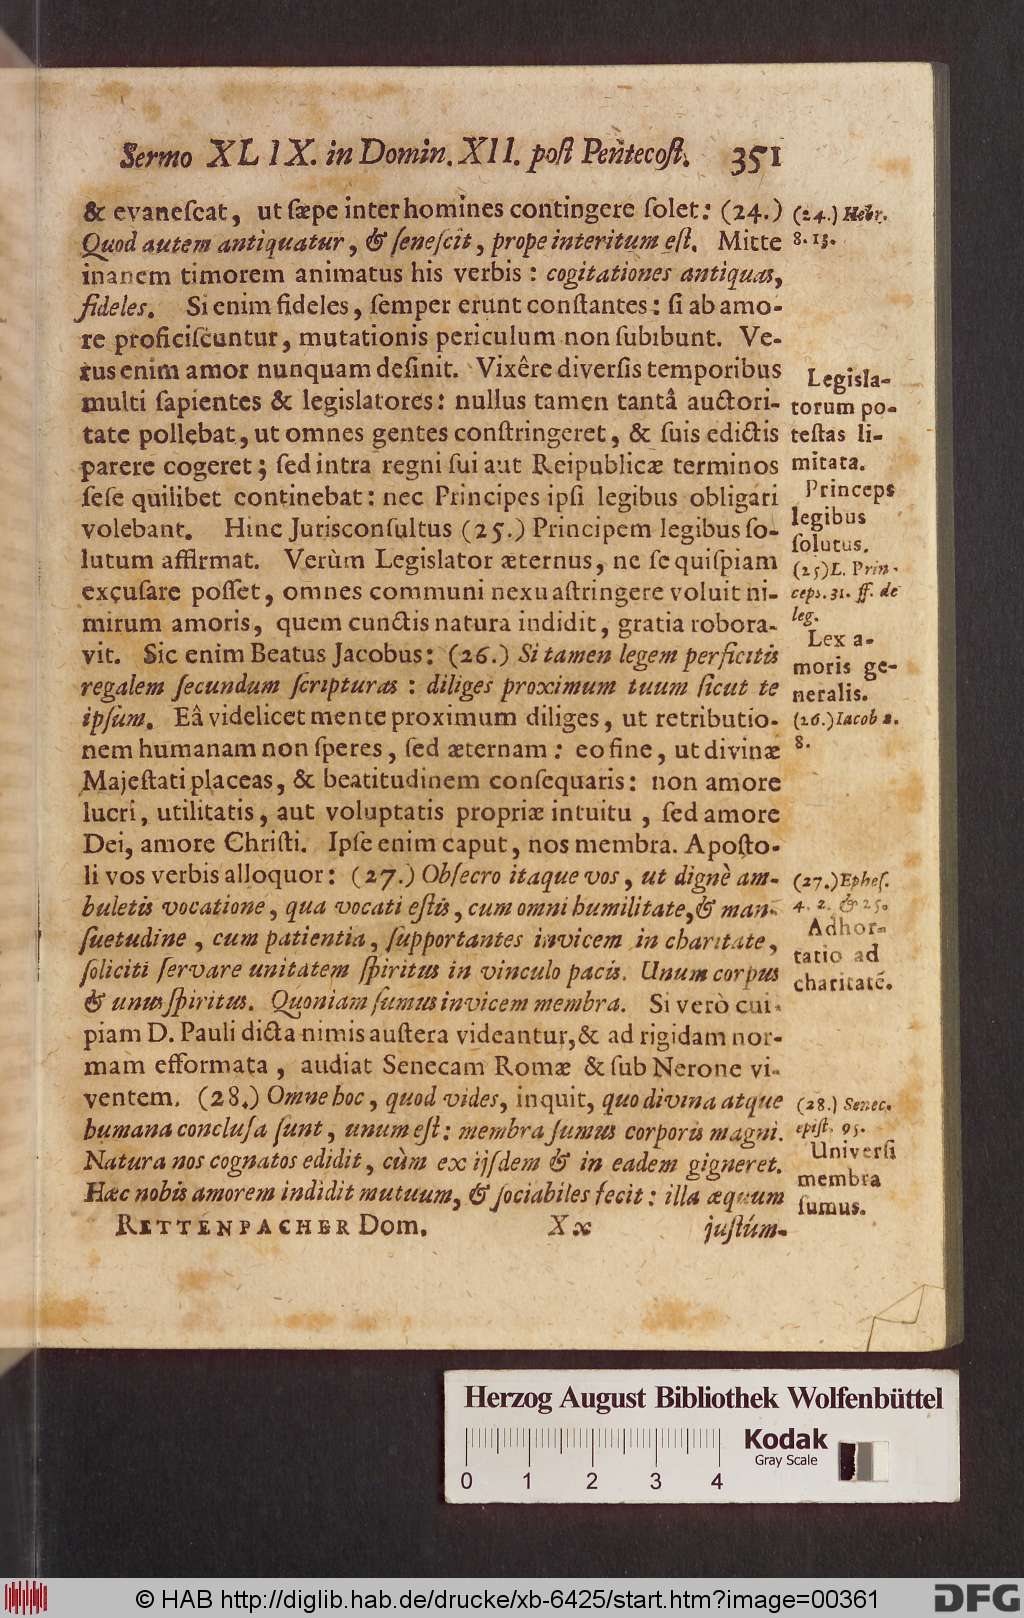 Sermo XLIX. in Domin. XII. poſt Pentecoſt. 351
& evaneſcat, ut ſæpe inter homines contingere ſolet: (24.)
Quod autem antiquatur, & ſeneſcit, prope interitum eſt. Mitte
inanem timorem animatus his verbis: cogitationes antiquas,
fideles. Si enim fideles, ſemper erunt conſtantes: ſi ab amo-
re proficiſcuntur, mutationis periculum non ſubibunt. Ve-
rus enim amor nunquam deſinit. Vixêre diverſis temporibus
multi ſapientes & legislatores: nullus tamen tantâ auctori-
tate pollebat, ut omnes gentes conſtringeret, & ſuis edictis
parere cogeret; ſed intra regni ſui aut Reipublicæ terminos
ſeſe quilibet continebat: nec Principes ipſi legibus obligari
volebant. Hinc Jurisconſultus (25.) Principem legibus ſo-
lutum affirmat. Verùm Legislator æternus, ne ſe quiſpiam
excuſare poſſet, omnes communi nexu aſtringere voluit ni-
mirum amoris, quem cunctis natura indidit, gratia robora-
vit. Sic enim Beatus Jacobus: (26.) Si tamen legem perficitis
regalem ſecundum ſcripturas: diliges proximum tuum ſicut te
ipſum. Eâ videlicet mente proximum diliges, ut retributio-
nem humanam non ſperes, ſed æternam: eo fine, ut divinæ
Majeſtati placeas, & beatitudinem conſequaris: non amore
lucri, utilitatis, aut voluptatis propriæ intuitu, ſed amore
Dei, amore Chriſti. Ipſe enim caput, nos membra. Apoſto-
li vos verbis alloquor: (27.) Obſecro itaque vos, ut dignè am-
buletis vocatione, qua vocati eſtis, cum omni humilitate, & man-
ſuetudine, cum patientia, ſupportantes invicem in charitate,
ſoliciti ſervare unitatem ſpiritus in vinculo pacis. Unum corpus
& unus ſpiritus. Quoniam ſumus invicem membra. Si verò cui-
piam D. Pauli dicta nimis auſtera videantur, & ad rigidam nor-
mam efformata, audiat Senecam Romæ & ſub Nerone vi-
ventem. (28.) Omne hoc, quod vides, inquit, quo divina atque
humana concluſa ſunt, unum eſt: membra ſumus corporis magni.
Natura nos cognatos edidit, cùm ex ijſdem & in eadem gigneret.
Hæc nobis amorem indidit mutuum, & ſociabiles fecit: illa æquum
RETTENPACHER Dom. Xx juſtúm-
(24.) Hebr.
8. 13.
Legisla-
torum po-
teſtas li-
mitata.
Princeps
legibus
ſolutus.
(25) L. Prin-
ceps. 31. ff. de
leg.
Lex a-
moris ge-
neralis.
(26.) Iacob 2.
8.
(27.) Epheſ.
4. 2. & 25.
Adhor-
tatio ad
charitatē.
(28.) Senec.
epiſt. 95.
Univerſi
membra
ſumus.
Herzog August Bibliothek Wolfenbüttel
Kodak
Gray Scale
0 1 2 3 4
© HAB http://diglib.hab.de/drucke/xb-6425/start.htm?image=00361
DFG